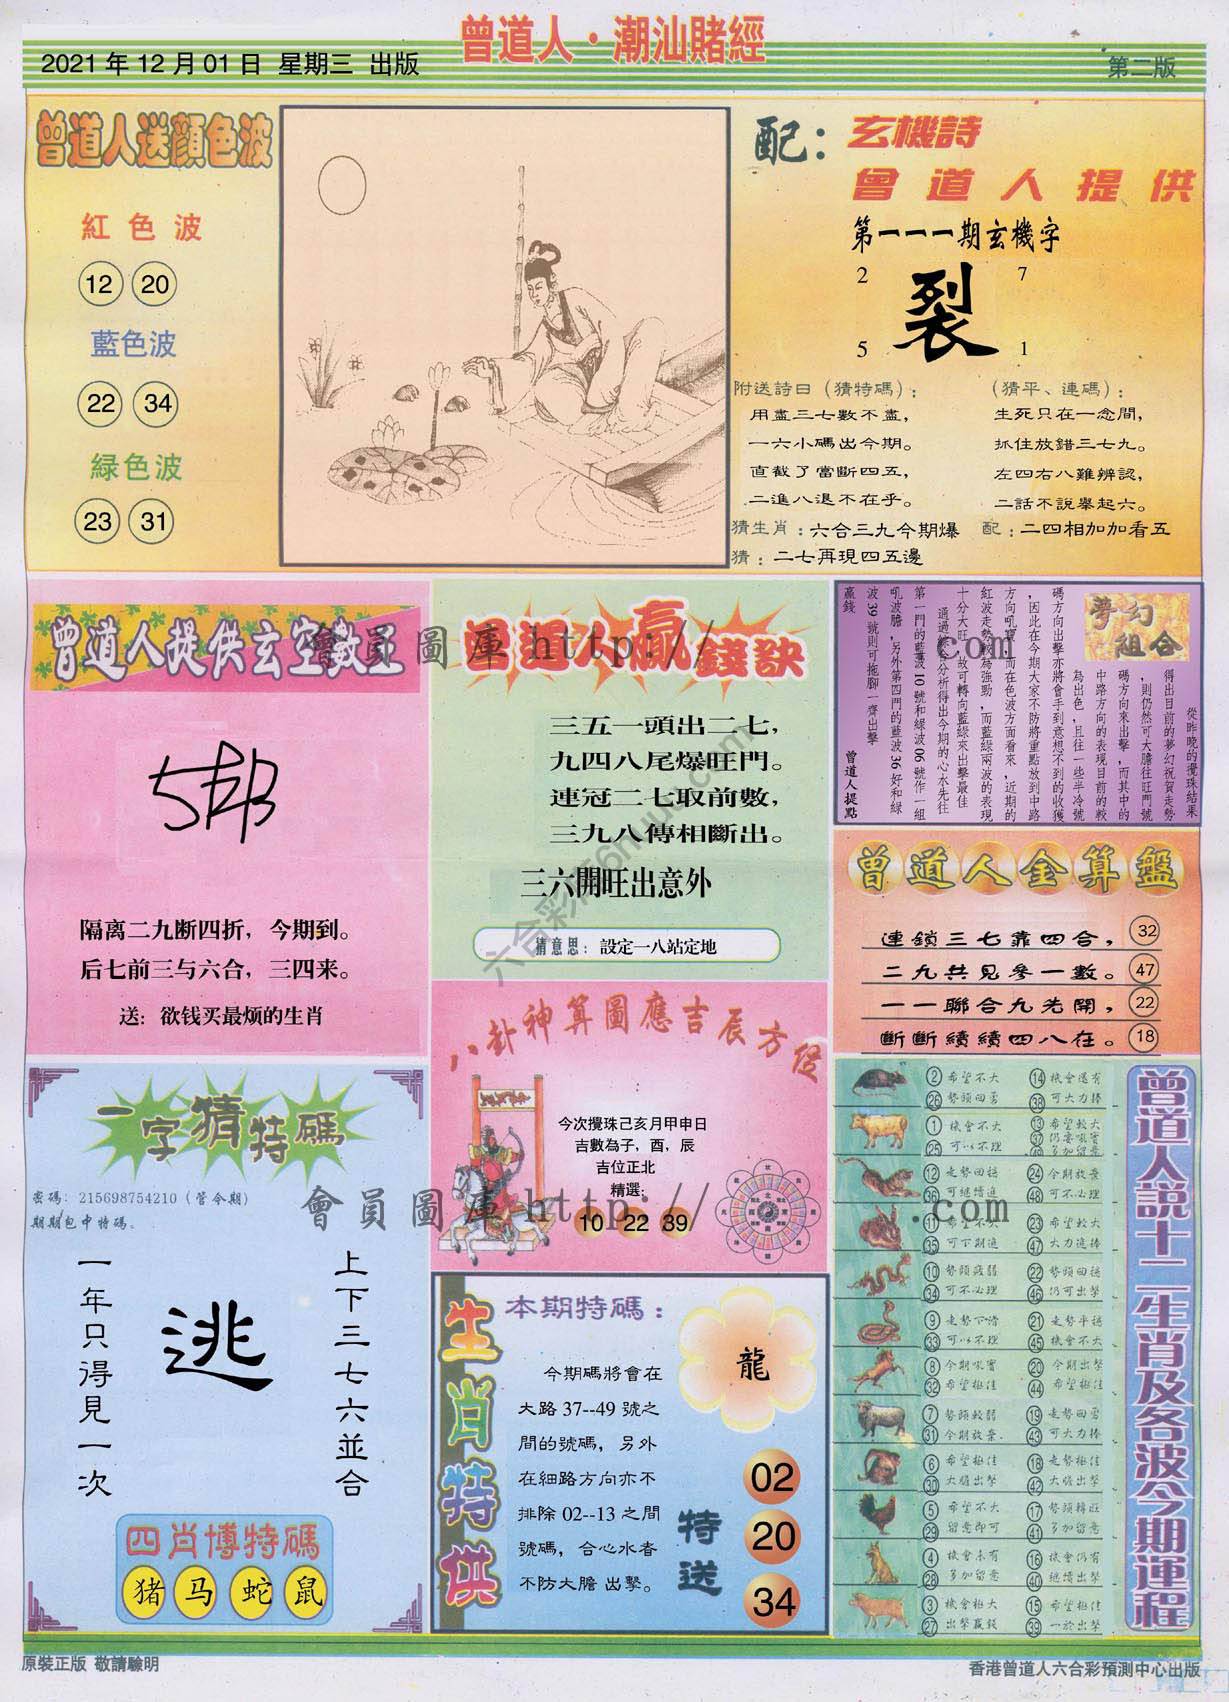 曾道人·潮汕賭經
2021年12月01日 星期三 出版
第二版
曾道人送顏色波
紅色波
12 20
藍色波
22 34
綠色波
23 31
配：
玄機詩
曾道人提供
第一一一期玄機字
2 7
裂
5 1
附送詩曰（猜特碼）：
用盡三七數不盡，
一六小碼出今期。
直截了當斷四五，
二進八退不在乎。
（猜平、連碼）：
生死只在一念間，
抓住放錯三七九。
左四右八難辨認，
二話不說舉起六。
猜生肖：六合三九今期爆
配：二四相加加看五
猜：二七再現四五邊
曾道人提供玄空數王
隔离二九断四折，今期到。
后七前三与六合，三四来。
送：欲钱买最烦的生肖
曾道人贏錢訣
三五一頭出二七，
九四八尾爆旺門。
連冠二七取前數，
三九八傳相斷出。
三六開旺出意外
猜意思：設定一八站定地
夢幻
組合
從昨晚的攪珠結果
得出目前的夢幻祝賀走勢
，則仍然可大膽往旺門號
碼方向來出擊，而其中的
中路方向的表現目前的較
為出色，且往一些半冷號
碼方向出擊亦將會手到意想不到的收獲
，因此在今期大家不防將重點放到中路
方向吼寶，而在色波方面看來，近期的
紅波走勢較為強勁，而藍綠兩波的表現
十分大旺，故可轉向藍綠來出擊最佳
通過綜合分析得出今期的心水先往
第一門的藍波10號和綠波06號作一組
吼波膽，另外第四門的藍波36好和綠
波39號則可拖腳一齊出擊
贏錢
曾道人提點
曾道人金算盤
連鎖三七靠四合， 32
二九共見參一數。 47
一一聯合九先開， 22
斷斷續續四八在。 18
八卦神算圖應吉辰方位
今次攪珠己亥月甲申日
吉數為子，酉，辰
吉位正北
精選：
10 22 39
一字猜特碼
密碼：215698754210（管今期）
期期包中特碼。
上下三七六並合
逃
一年只得見一次
四肖博特碼
猪 马 蛇 鼠
生肖特供
本期特碼：
龍
今期碼將會在
大路37--49號之
間的號碼，另外
在細路方向亦不
排除02--13之間
號碼，合心水者
不防大膽 出擊。
特送
02
20
34
曾道人說十二生肖及各波今期運程
2 希望不大 14 機會還有
26 勢頭回勇 38 可大力捧
1 機會不大 13 希望較大
25 可以不理 37 仍要吼實
多加留意
12 走勢回穩 24 今期放棄
36 可繼續追 48 可不必理
11 希望不大 23 希望較大
35 可下期追 47 大力追捧
10 勢頭疲弱 22 勢頭回穩
34 可不必理 46 仍可出擊
9 走勢下滑 21 走勢平穩
33 可以不理 45 機會不大
8 今期吼實 20 今期出擊
32 希望極佳 44 希望極佳
7 勢頭較弱 19 走勢回勇
31 今期放棄. 43 可大力捧
6 希望極佳 18 走勢極佳
30 大膽出擊 42 大膽出擊
5 希望不大 17 勢頭轉旺
29 留意即可 41 多加留意
4 機會未有 16 機會仍有
28 多加留意 40 繼續出擊
3 機會極大 15 希望極佳
27 出擊贏錢 39 一於出擊
會員圖庫 http:// .com
會員圖庫 http:// .com
原裝正版 敬請驗明
香港曾道人六合彩預測中心出版